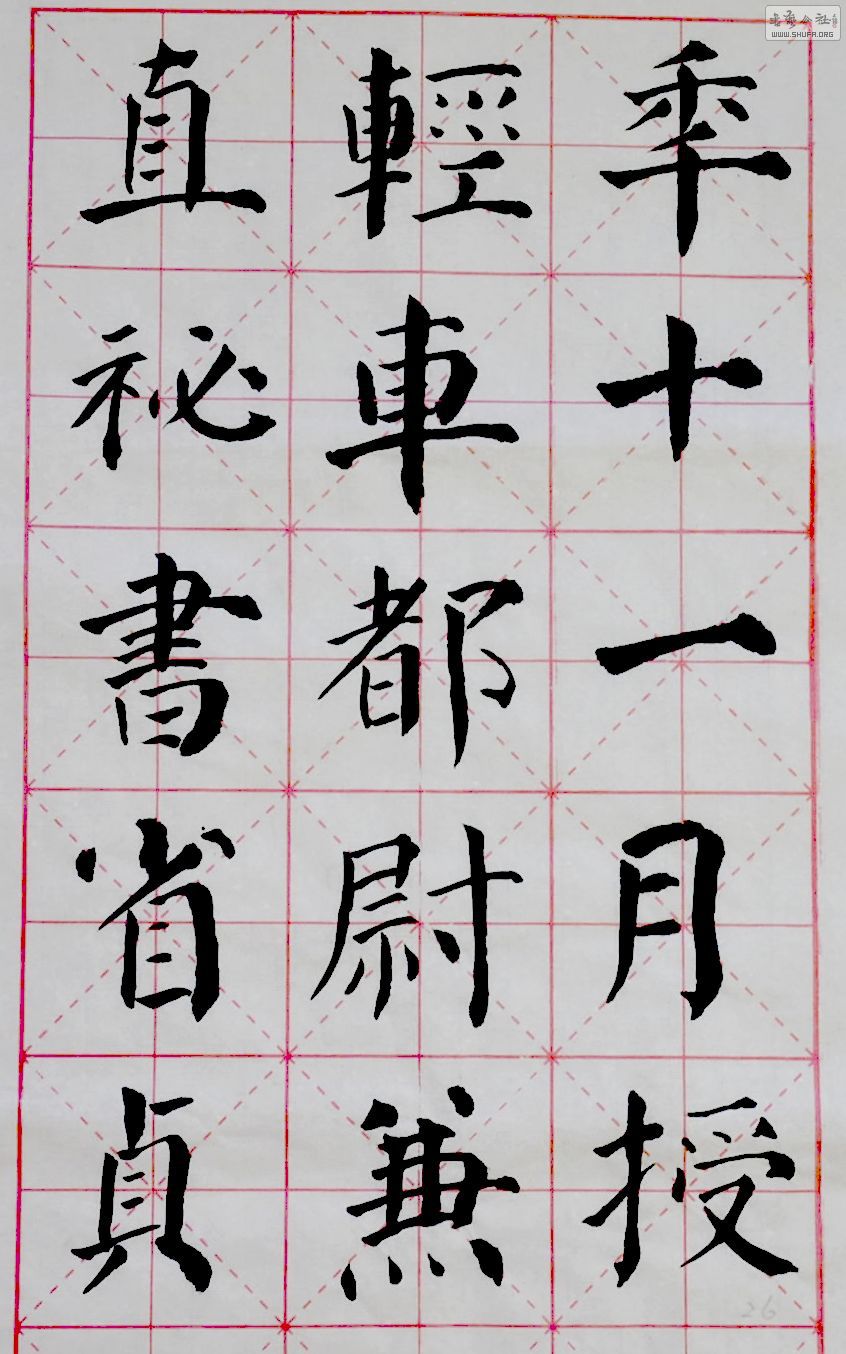 秊十一月授
輕車都尉兼
直祕書省貞
WWW.SHUFA.ORG
26